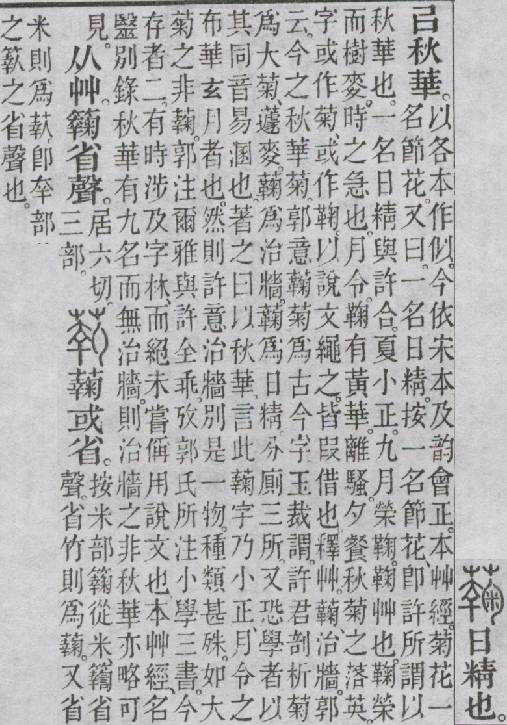 日精也。
㠯秋華。以各本作似。今依宋本及韵會正。本艸經。菊花一
名節花。又曰。一名日精。按一名節花。卽許所謂以
秋華也。一名日精與許合。夏小正。九月榮鞠。鞠艸也。鞠榮
而樹麥。時之急也。月令。鞠有黃華。離騷。夕餐秋菊之落英。
字或作菊。或作鞠。以說文繩之。皆叚借也。釋艸。蘜治牆。郭
云。今之秋華菊。郭意蘜菊爲古今字。玉裁謂。許君剖析菊
爲大菊、蘧麥。蘜爲治牆。蘜爲日精。分廁三所。又恐學者以
其同音易溷也。著之曰以秋華。言此蘜字乃小正月令之
布華玄月者也。然則許意治牆別是一物。種類甚殊。如大
菊之非蘜。郭注爾雅與許全乖。攷郭氏所注小學三書。今
存者二。有時涉及字林。而絕未嘗偁用說文也。本艸經、名
醫別錄秋華有九名而無治牆。則治牆之非秋華亦略可
見。从艸。𥶶省聲。居六切。三部。蘜或省。按米部𥶶從米𥷚省
聲。省竹則爲蘜。又省
米則爲䓻。卽𡴘部
之𥷚之省聲也。